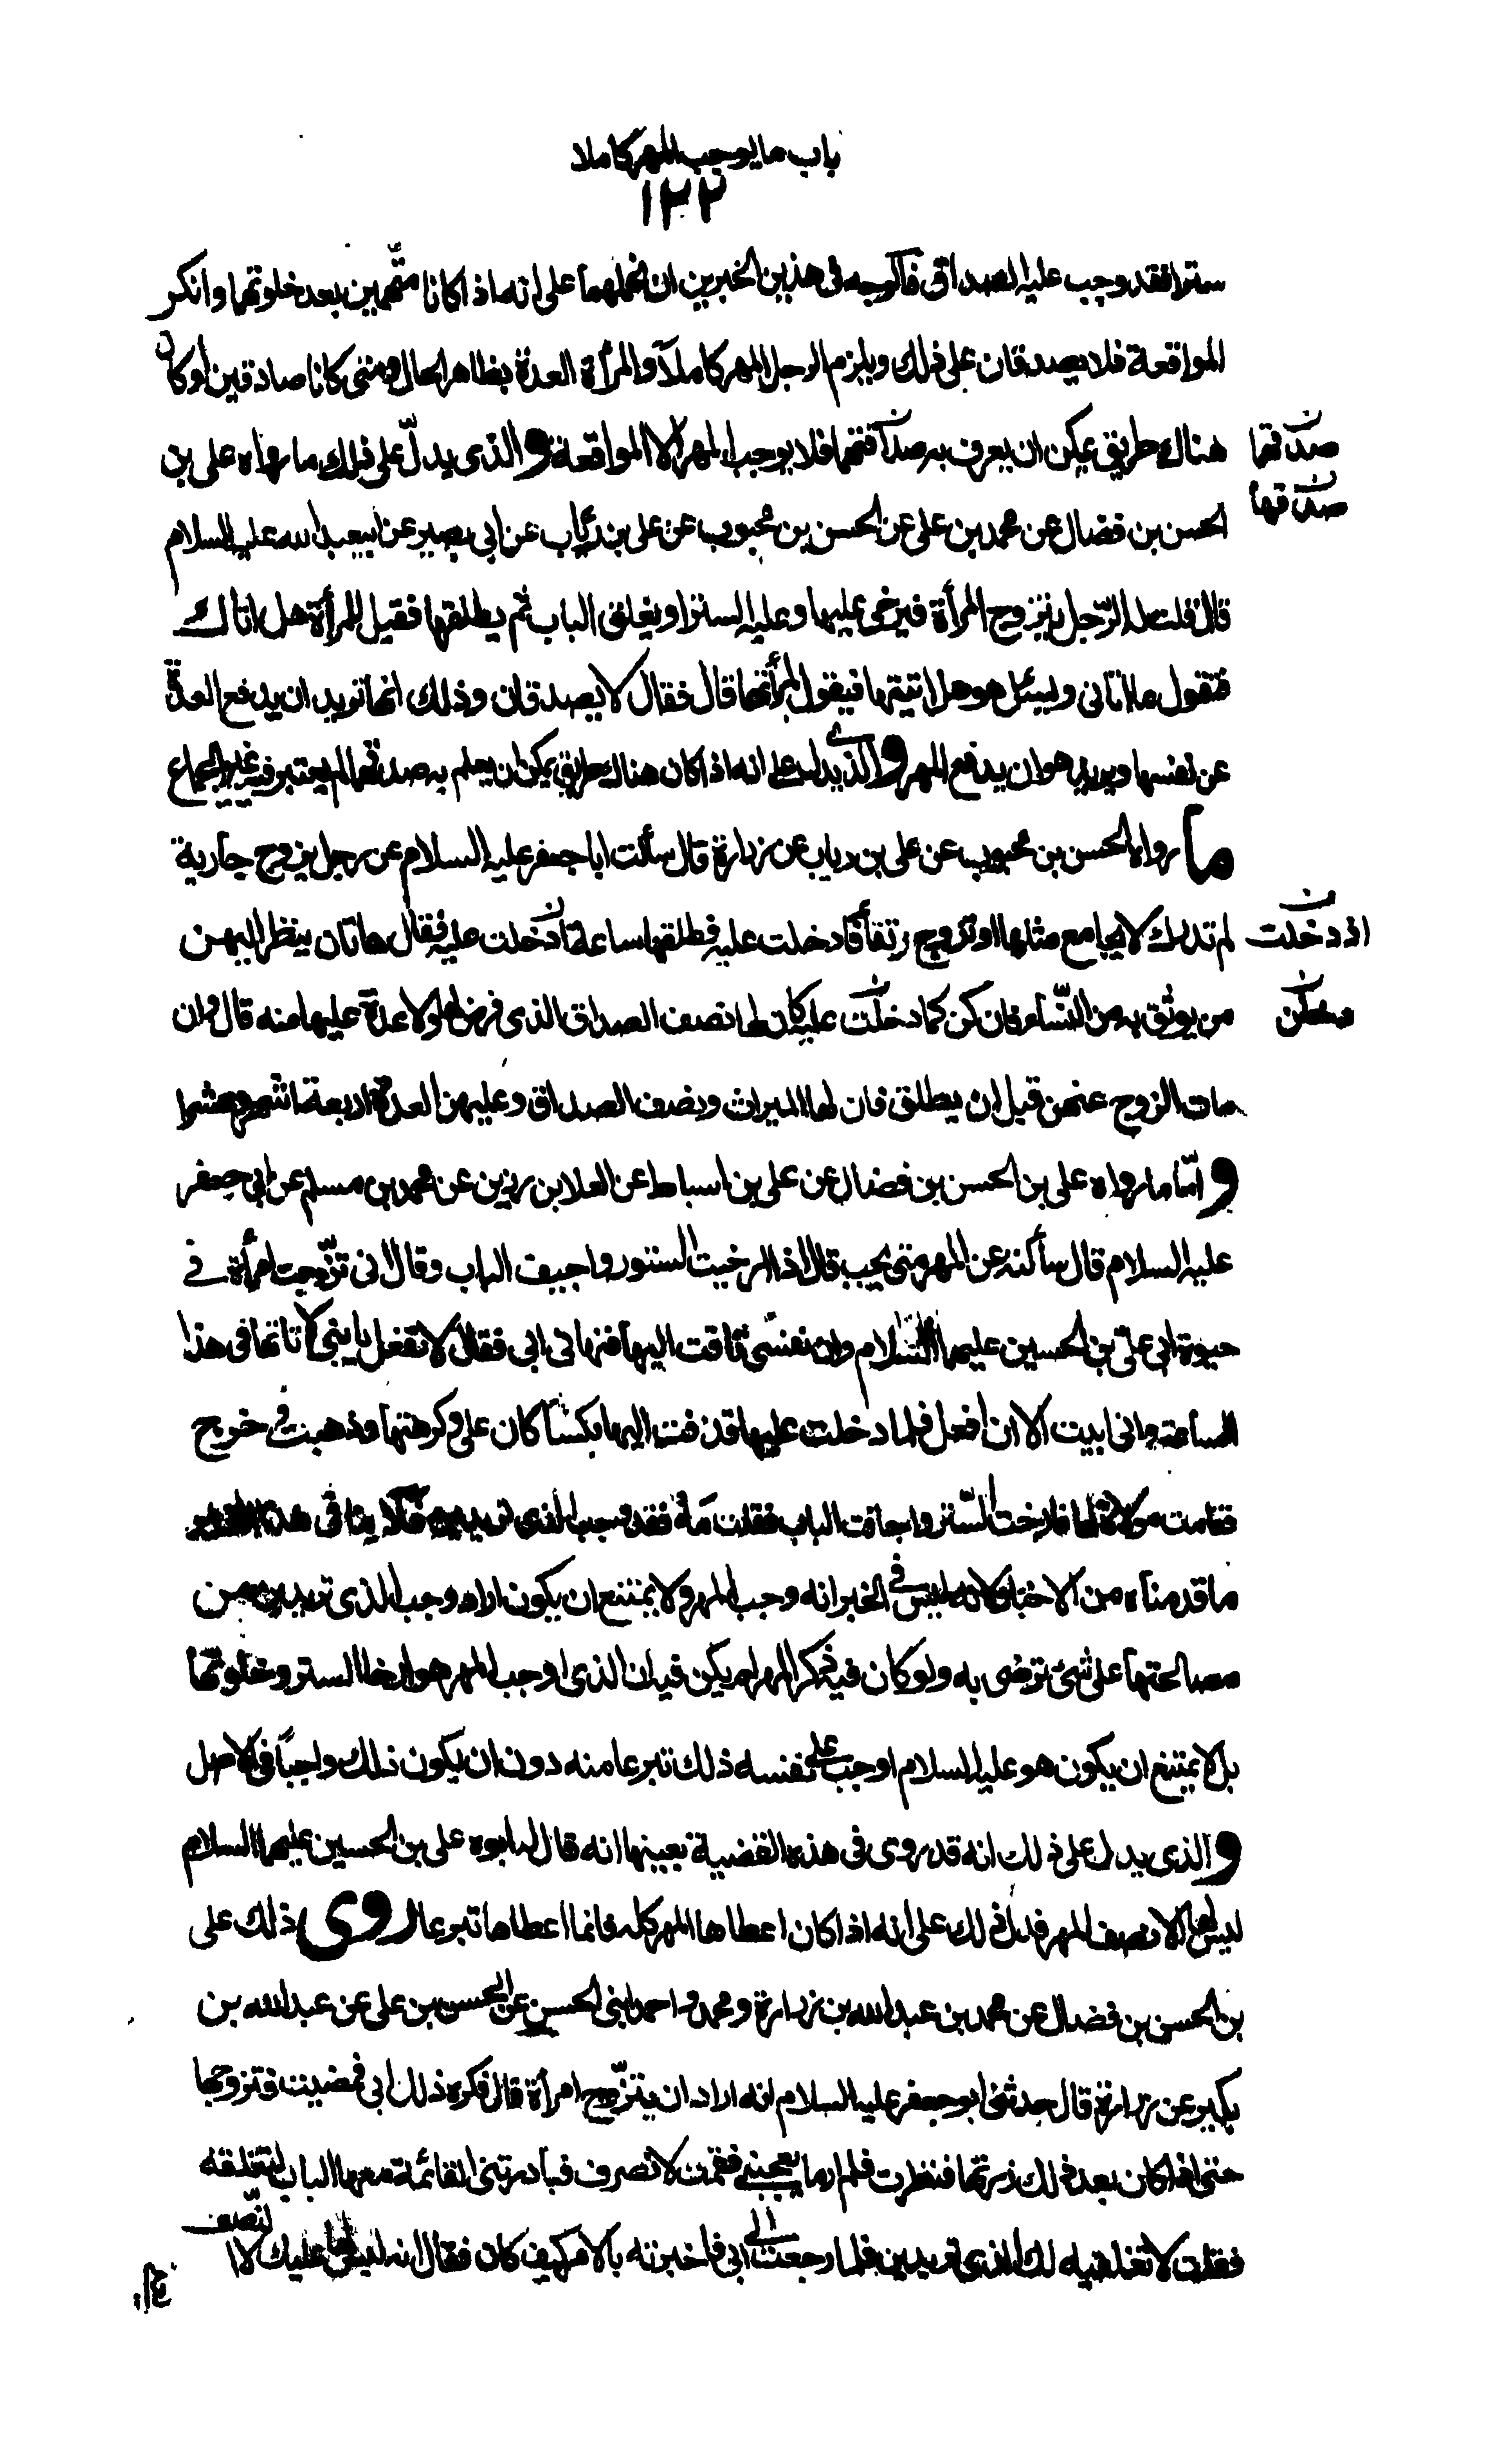 باب ما يوجب المهر كاملا
١٢٢
سترا فقد وجب عليه الصداق فالوجه فى هذين الخبرين ان نحملهما على انه اذا كانا متّهمين بعد خلوتهما وانكر
المواقعة فلا يصدقان على ذلك ويلزم الرجل المهر كاملا والمرأة العدة بظاهر الحال ومتى كانا صادقين او كان
هناك طريق يمكن ان يعرف به صدقهما فلا يوجب المهر الا المواقعة والذى يدلّ على ذلك ما رواه على بن
صدقهما
صدقها
الحسن بن فضال عن محمد بن على عن الحسن بن محبوب عن على بن رئاب عن ابى بصير عن ابيعبد الله عليه السلام
قال قلت له الرّجل يتزوج المرأة فيرخى عليها وعليه الستر او يغلق الباب ثم يطلقها فقيل للمرأة هل اتاك
فتقول ما اتانى ويسئل هو هل اتيتها فيقول لم أتها قال فقال لا يصدقان وذلك انها تريد ان يدفع العدة
عن نفسها ويريد هو ان يدفع المهر والذى يدل على انه اذا كان هناك طريق يمكن ان يعلم به صدقهما لم يعتبر فيه غير الجماع
ما رواه الحسن بن محبوب عن على بن رياب عن زرارة قال سألت ابا جعفر عليه السلام عن رجل يزوج جارية
لم تدرك لا يجامع مثلها او تزوج رتقا فادخلت عليه فطلقها ساعة ادخلت عليه فقال هاتان ينظر اليهن
اذ دخلت
من يوثق به من النّساء فان كن كما دخلت عليه كان لها نصف الصداق الذى فرض لها ولا عدة عليها منه قال وان
مات الزوج عنهن قبل ان يطلق فان لها الميراث ونصف الصداق وعليهن العدة اربعة اشهر وعشرا
وامّا ما رواه على بن الحسن بن فضال عن على بن اسباط عن العلا بن رزين عن محمد بن مسلم عن ابى جعفر
عليه السلام قال سألته عن المهر متى يجب قال اذا ارخيت الستور واجيف الباب وقال انى تزّوجت امرأة فى
حيوة ابى علىّ بن الحسين عليهما السّلام وان نفسى تاقت اليها فنهانى ابى فقال لا تفعل يا بنى لا تاتها فى هذا
الساعة وانى ابيت الا ان افعل فلما دخلت عليها قذفت اليها بكساء كان على وكرهتها وذهبت لا خرج
فقامت مولاة لها فارخت السّتر واجافت الباب فقلت مه فقد وجب الذى تريدين فلا ينافى هذه
ما قدمناه من الاخبار لانه ليس فى الخبر انه وجب المهر ولا يمتنع ان يكون اراد وجب الذى تريدين من
مصالحتها على شئ ترضى به ولو كان فيه ذكر المهر لم يكن فيه ان الذى اوجب المهر هو ارخا الستر وخلوتهما
بل لا يمتنع ان يكون هو عليه السلام اوجب على نفسه ذلك تبرعا منه دون ان يكون ذلك واجبًا فى الاصل
والذى يدل على ذلك انه قد روى فى هذه القضية بعينها انه قال له ابوه على بن الحسين عليهما السلام
ليس لها الا نصف المهر فدل ذلك على انه اذا كان اعطاها المهر كله فانما اعطاها تبرعا روى ذلك على
بن الحسن بن فضال عن محمد بن عبد الله بن زرارة ومحمد واحمد ابنى الحسن عن الحسن بن على عن عبد الله بن
بكير عن زرارة قال حدثنى ابو جعفر عليه السلام انه اراد ان يتزّوج امرأة قال فكره ذلك ابى فمضيت فتزوجها
حتى اذا كان بعد ذلك زرتها فنظرت فلم ار ما يعجبنى فقمت لانصرف فبادرتنى القائمة معها الباب لتغلقه
فقلت لا تغلقيه لك الذى تريدين فلما رجعت الى ابى فاخبرته بالامر كيف كان فقال انه ليس لها عليك الا النّصف